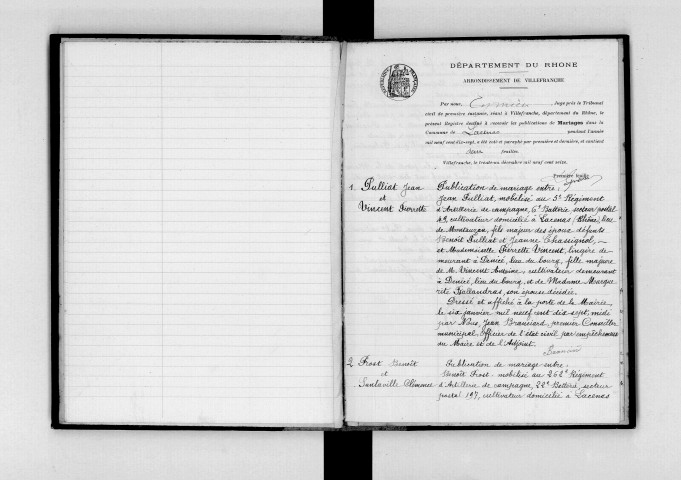 DÉPARTEMENT DU RHONE
ARRONDISSEMENT DE VILLEFRANCHE
Par nous, Juge près le Tribunal
civil de première instance, séant à Villefranche, département du Rhône, le
présent Registre destiné à recevoir les publications de Mariages dans la
Commune de Lacenas pendant l'année
mil neuf cent dix-sept, a été coté et paraphé par première et dernière, et contient
feuilles.
Villefranche, le trente-un décembre mil neuf cent seize.
Première feuille
1. Pulliat Jean
et
Vincent Pierrette
Publication de mariage entre:
Jean Pulliat, mobilisé au 5e Régiment
d'Artillerie de campagne, 6e Batterie, secteur postal
42, cultivateur domicilié à Lacenas (Rhône), lieu
de Montauzan, fils majeur des époux défunts
Benoît Pulliat et Jeanne Chassignol, —
et Mademoiselle Pierrette Vincent, lingère de
meurant à Denicé, lieu du bourg, fille majeure
de M. Vincent Antoine, cultivateur demeurant
à Denicé, lieu du bourg, et de Madame Margue
rite Ballandras, son épouse décédée.
Dressé et affiché à la porte de la Mairie,
le six janvier mil neuf cent dix sept, midi
par Nous, Jean Branciard, premier Conseiller
municipal, Officier de l'état civil par empêchement
du Maire et de l'Adjoint.
2. Prost Benoît
et
Santaville
Publication de mariage entre:
Benoît Prost, mobilisé au 262e Régiment
d'Artillerie de campagne, 22e Batterie, secteur
postal 197, cultivateur domicilié à Lacenas